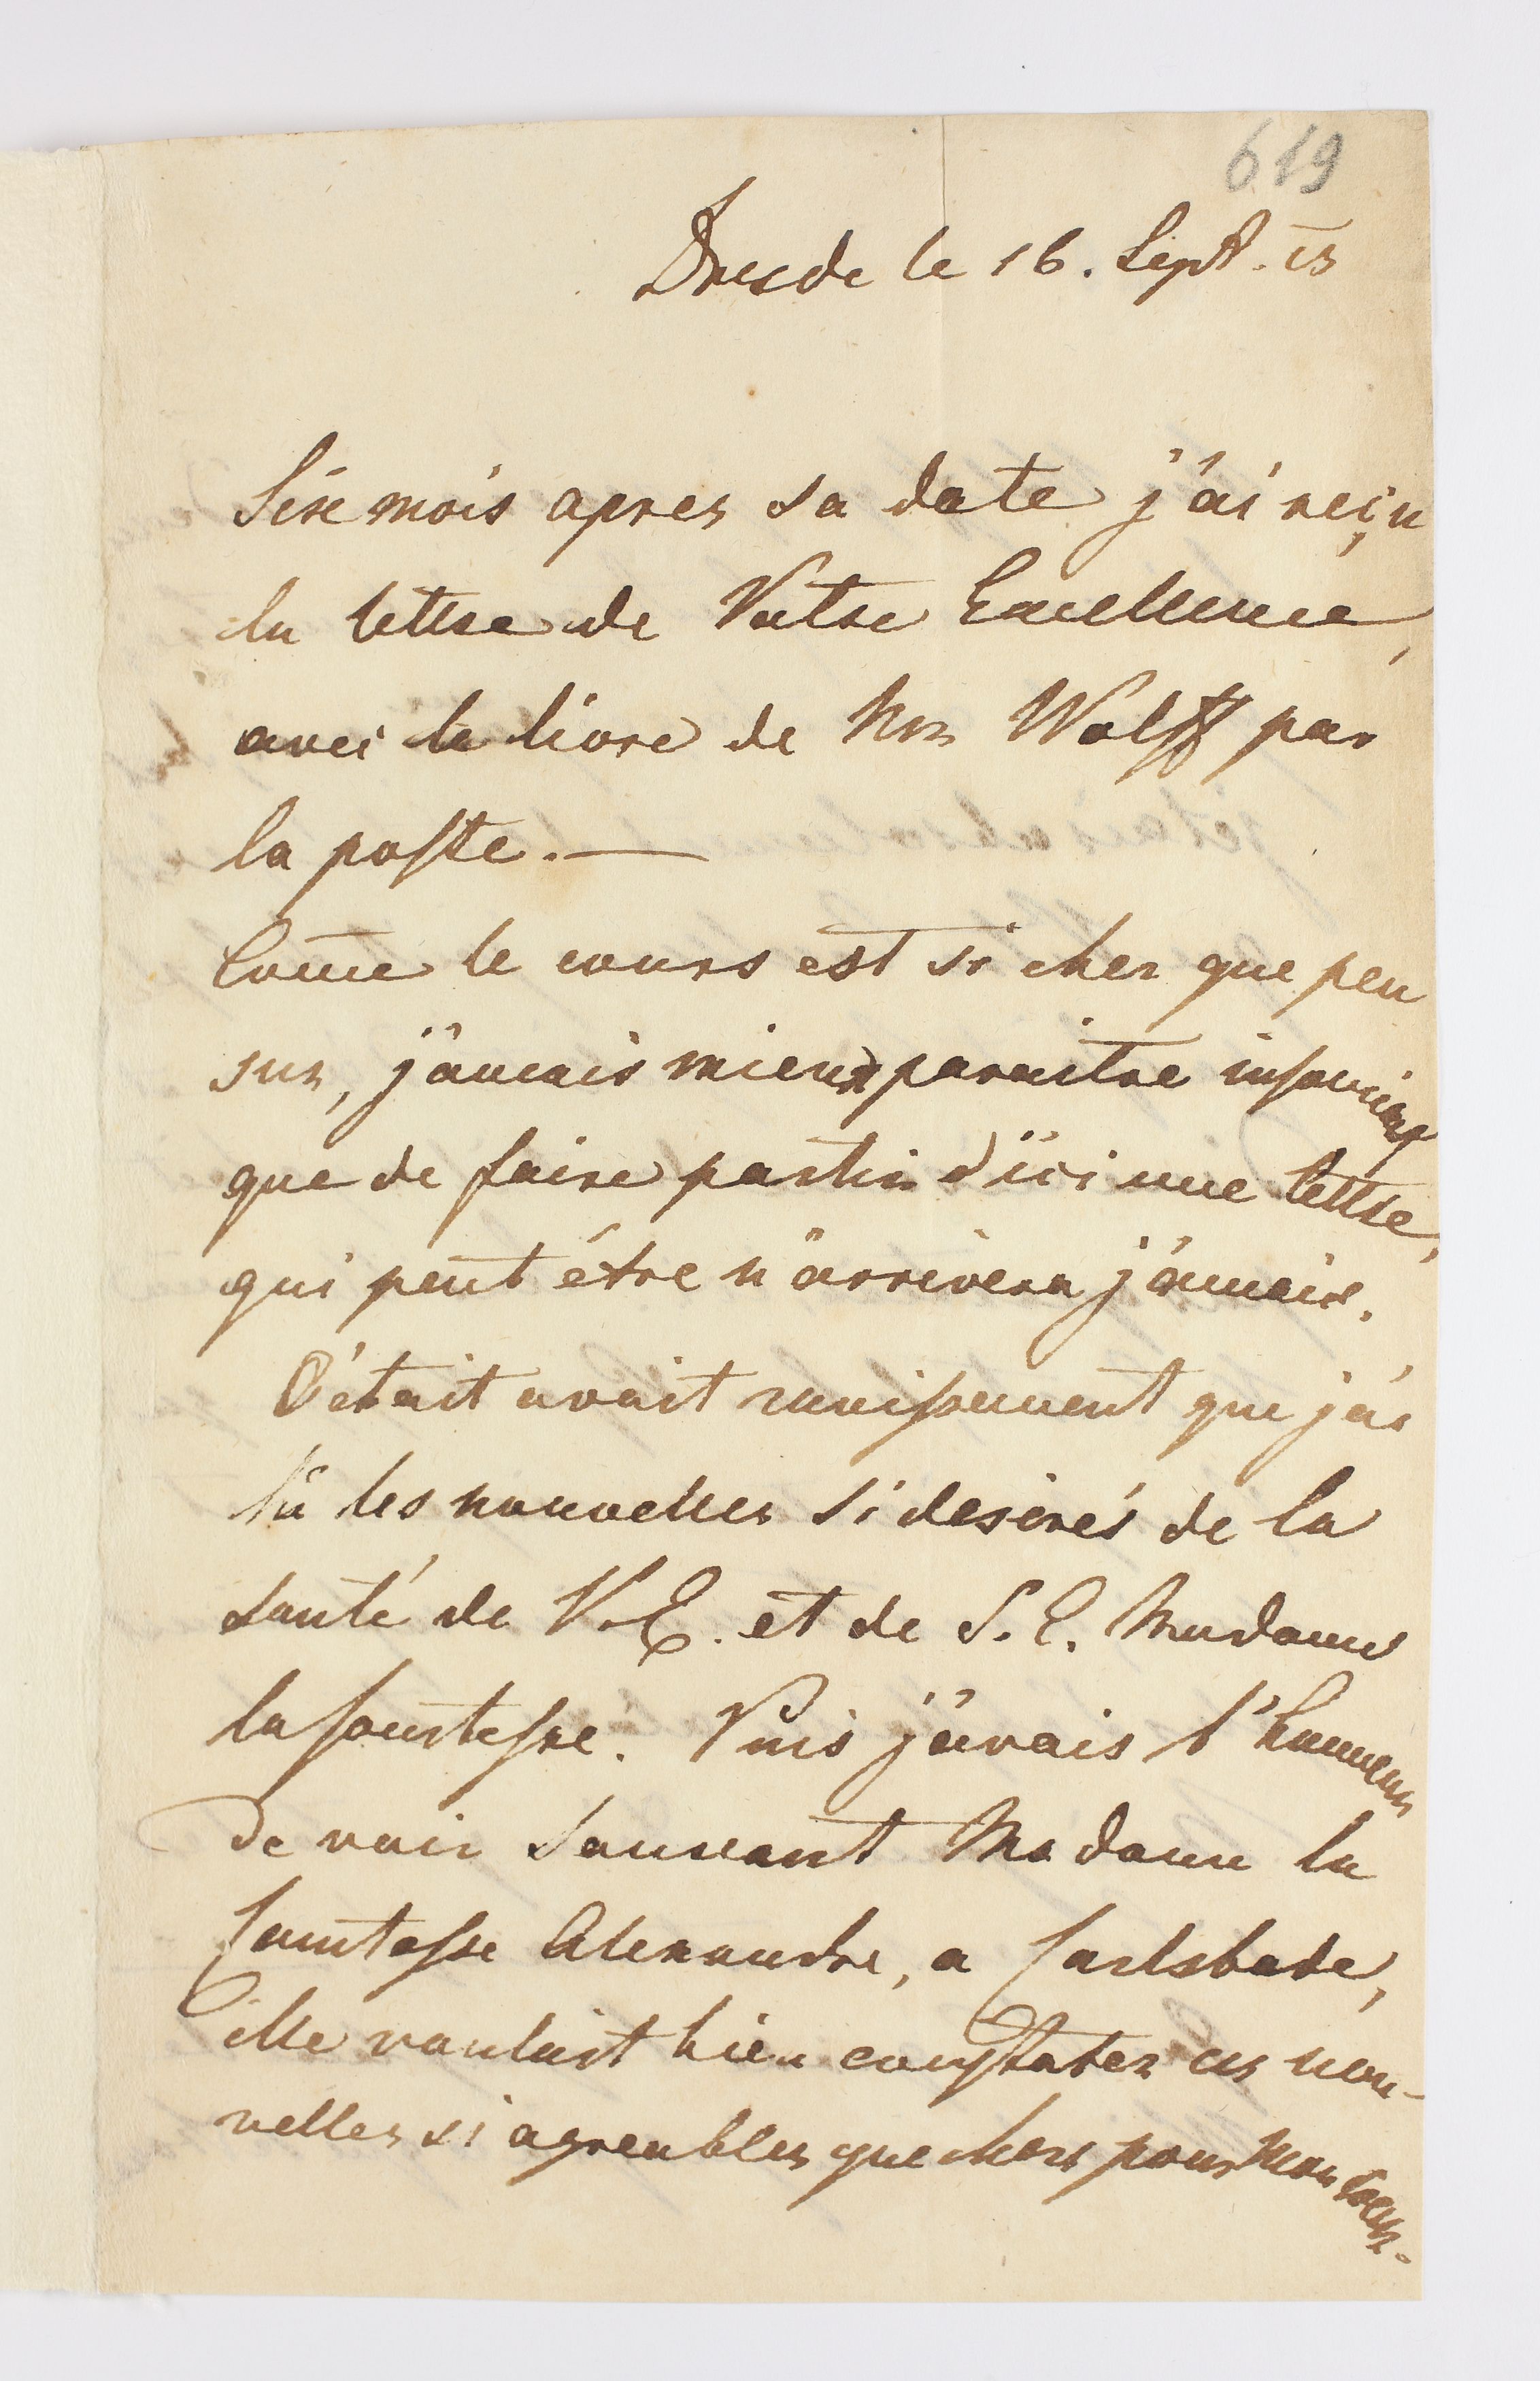 619
Dresde le 16. Sept. 13
Sixe mois apres sa date j'ai reçu
la lettre de Votre Excellence,
avec le livre de Mr. Wolff par
la poste. —
Com̄e le cours est si cher que peu
sur, j'aimais mieux paraitre insouciant
que de faire partir d'ici une lettre,
qui peut être n'arrivera j'amais.
C'était avait ravissement que j'ai
lû les nouvelles si desirés de la
santé de V.E. et de S.E. Madame
la Comtesse. Puis j'avais l'honneur
de voir souveant Madame la
Comtesse Alexandre, a Carlsbade,
elle voulait bien constater ces nou-
velles si agreables que chers pour mon coeur.